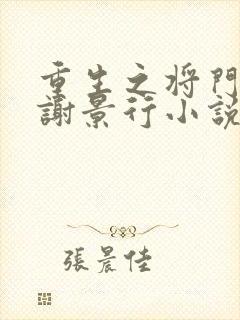 重生之将門
謝景行小說
張晨佳